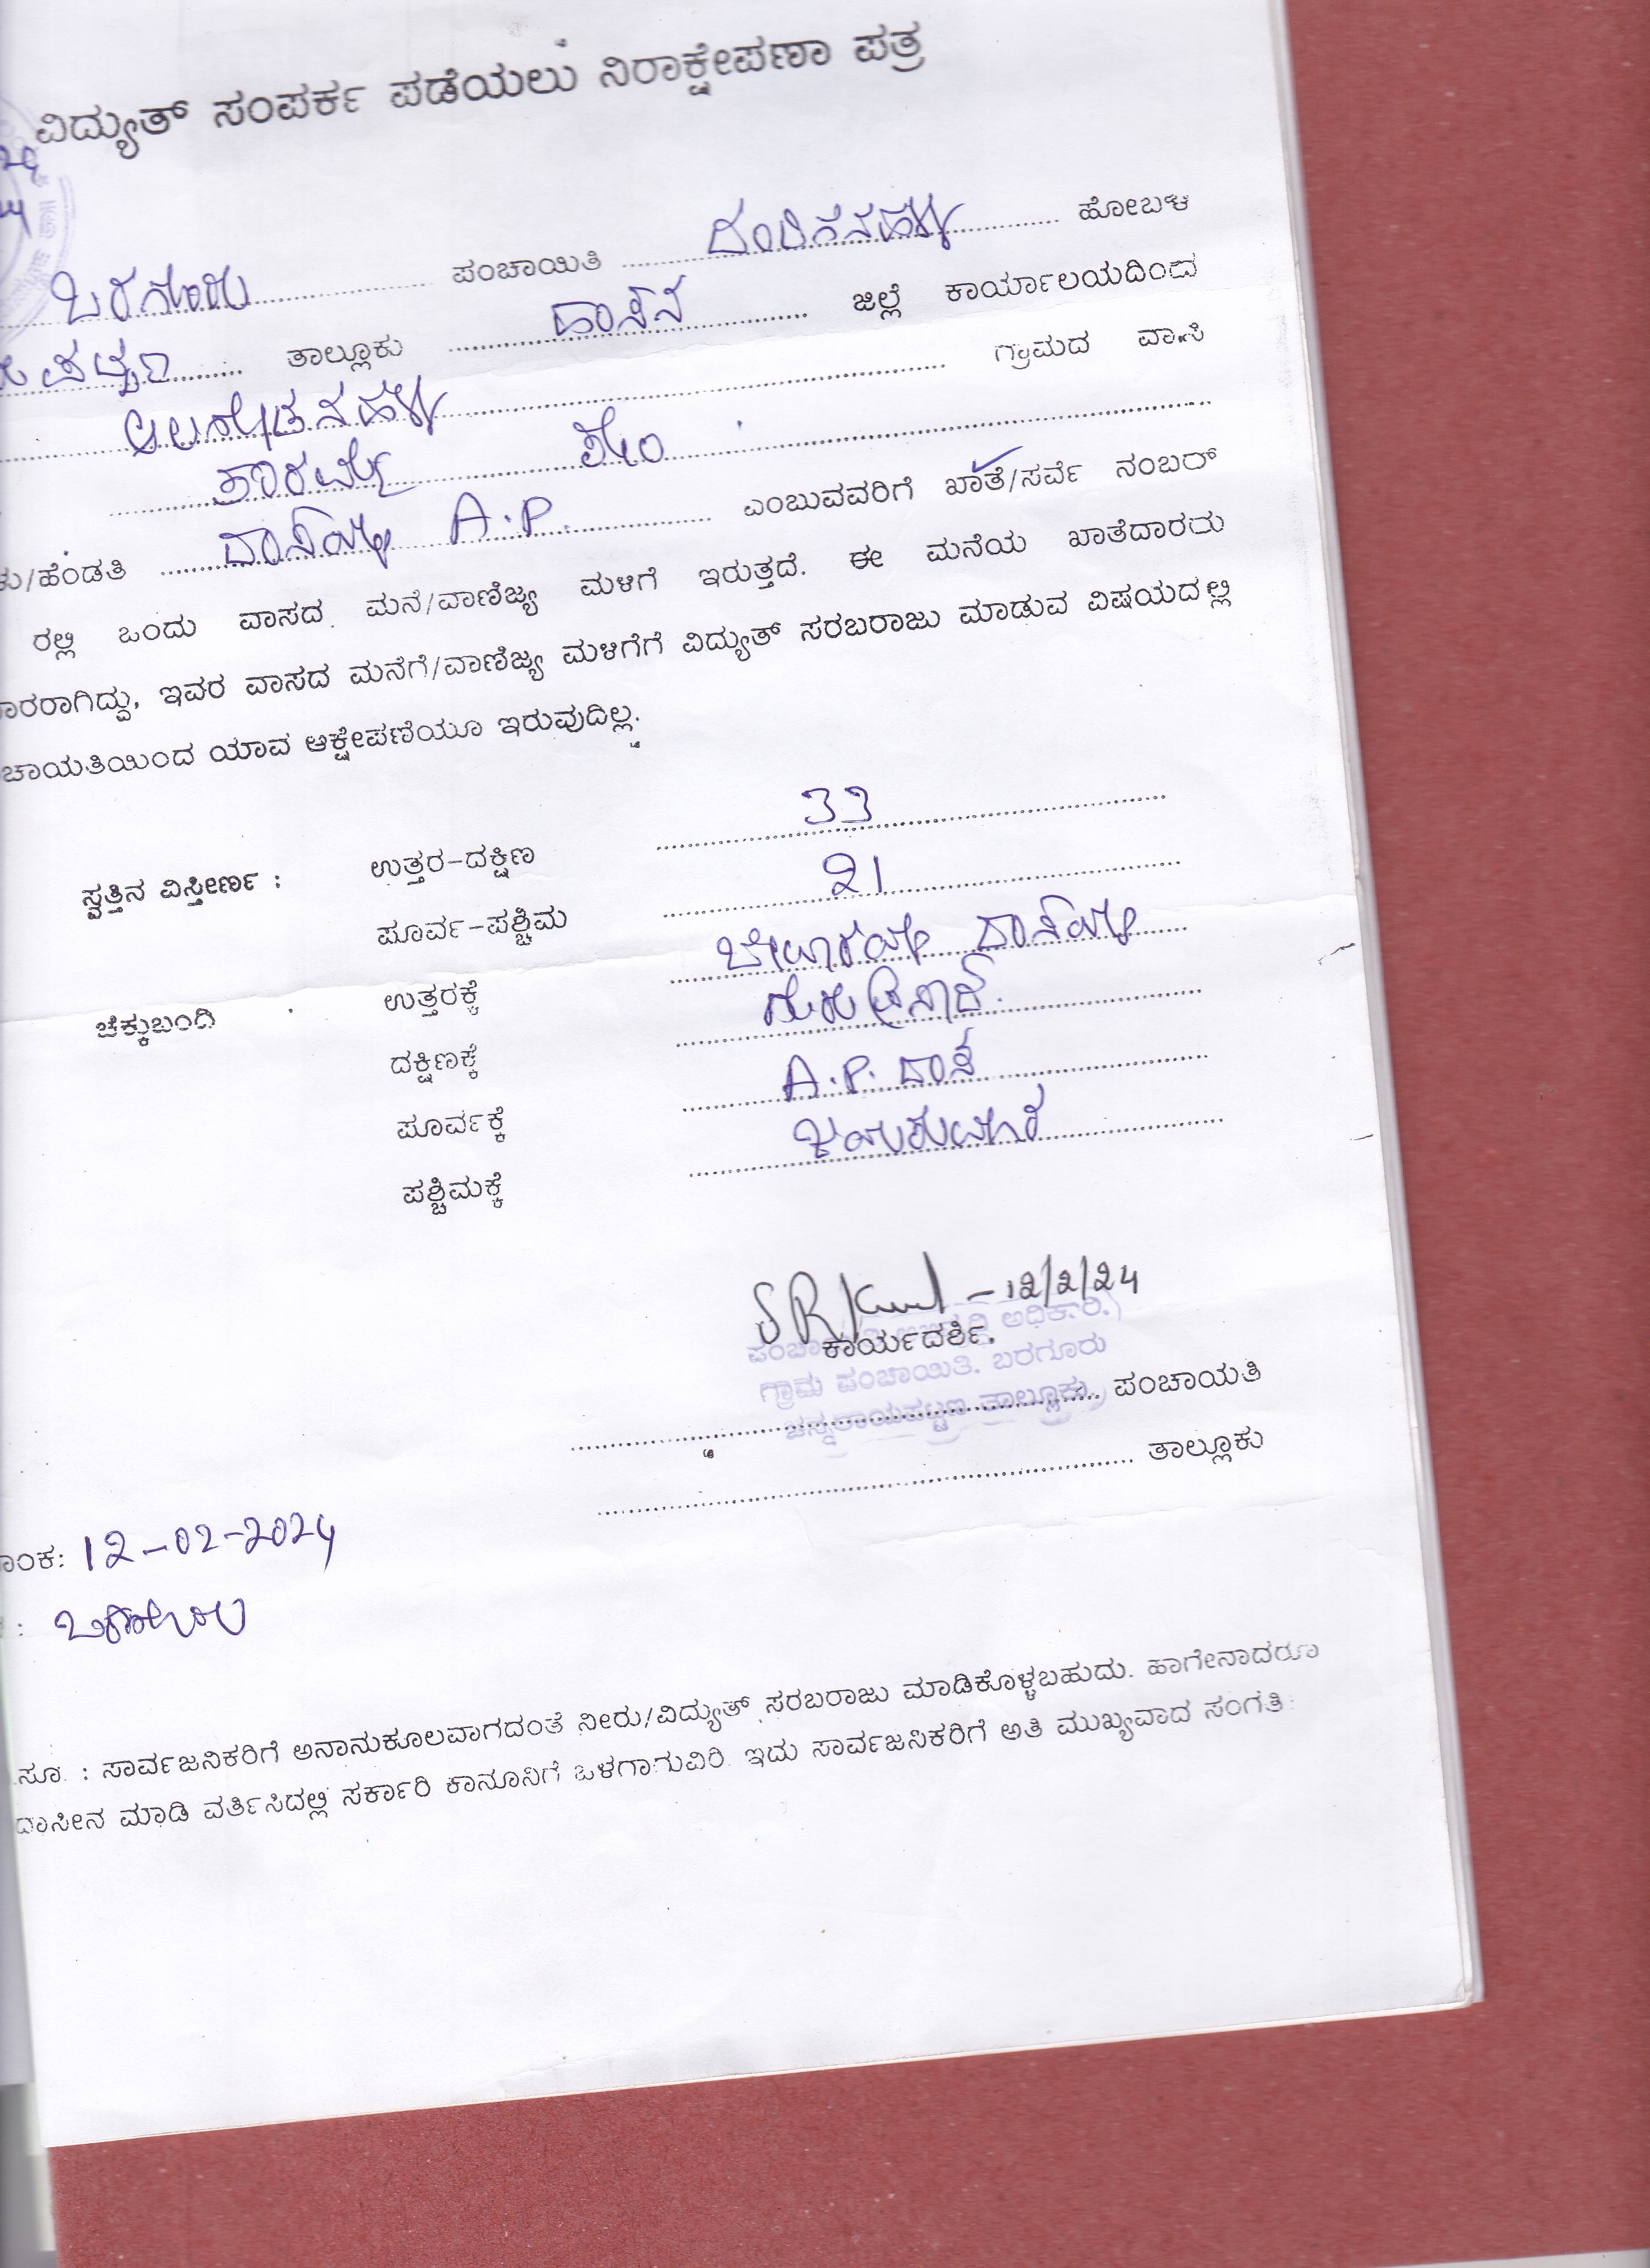 ವಿದ್ಯುತ್ ಸಂಪರ್ಕ ಪಡೆಯಲು ನಿರಾಕ್ಷೇಪಣಾ ಪತ್ರ
ಬರಗೂರು ಪಂಚಾಯಿತಿ ದಂಡಿಗನಹಳ್ಳಿ ಹೋಬಳಿ
ಪಟ್ಟಣ ತಾಲ್ಲೂಕು ಹಾಸನ ಜಿಲ್ಲೆ ಕಾರ್ಯಾಲಯದಿಂದ
ಗ್ರಾಮದ ವಾಸಿ
ಕು/ಹೆಂಡತಿ A.P. ಎಂಬುವವರಿಗೆ ಖಾತೆ/ಸರ್ವೆ ನಂಬರ್
ರಲ್ಲಿ ಒಂದು ವಾಸದ ಮನೆ/ವಾಣಿಜ್ಯ ಮಳಿಗೆ ಇರುತ್ತದೆ. ಈ ಮನೆಯ ಖಾತೆದಾರರು
ಾರರಾಗಿದ್ದು, ಇವರ ವಾಸದ ಮನೆಗೆ/ವಾಣಿಜ್ಯ ಮಳಿಗೆಗೆ ವಿದ್ಯುತ್ ಸರಬರಾಜು ಮಾಡುವ ವಿಷಯದಲ್ಲಿ
ಚಾಯತಿಯಿಂದ ಯಾವ ಆಕ್ಷೇಪಣೆಯೂ ಇರುವುದಿಲ್ಲ.
ಸ್ವತ್ತಿನ ವಿಸ್ತೀರ್ಣ : ಉತ್ತರ-ದಕ್ಷಿಣ 33
ಪೂರ್ವ-ಪಶ್ಚಿಮ 21
ಚೆಕ್ಕುಬಂದಿ : ಉತ್ತರಕ್ಕೆ
ದಕ್ಷಿಣಕ್ಕೆ
ಪೂರ್ವಕ್ಕೆ A.P. ದಾಸ
ಪಶ್ಚಿಮಕ್ಕೆ
12/2/24
ಕಾರ್ಯದರ್ಶಿ.
ಅಧಿಕಾರಿ.
ಗ್ರಾಮ ಪಂಚಾಯಿತಿ. ಬರಗೂರು
ಚನ್ನರಾಯಪಟ್ಟಣ ತಾಲ್ಲೂಕು.
ಪಂಚಾಯತಿ
ತಾಲ್ಲೂಕು
ಾಂಕ: 12-02-2024
: ಬರಗೂರು
ಸೂ. : ಸಾರ್ವಜನಿಕರಿಗೆ ಅನಾನುಕೂಲವಾಗದಂತೆ ನೀರು/ವಿದ್ಯುತ್ ಸರಬರಾಜು ಮಾಡಿಕೊಳ್ಳಬಹುದು. ಹಾಗೇನಾದರೂ
ದಾಸೀನ ಮಾಡಿ ವರ್ತಿಸಿದಲ್ಲಿ ಸರ್ಕಾರಿ ಕಾನೂನಿಗೆ ಒಳಗಾಗುವಿರಿ. ಇದು ಸಾರ್ವಜನಿಕರಿಗೆ ಅತಿ ಮುಖ್ಯವಾದ ಸಂಗತಿ.